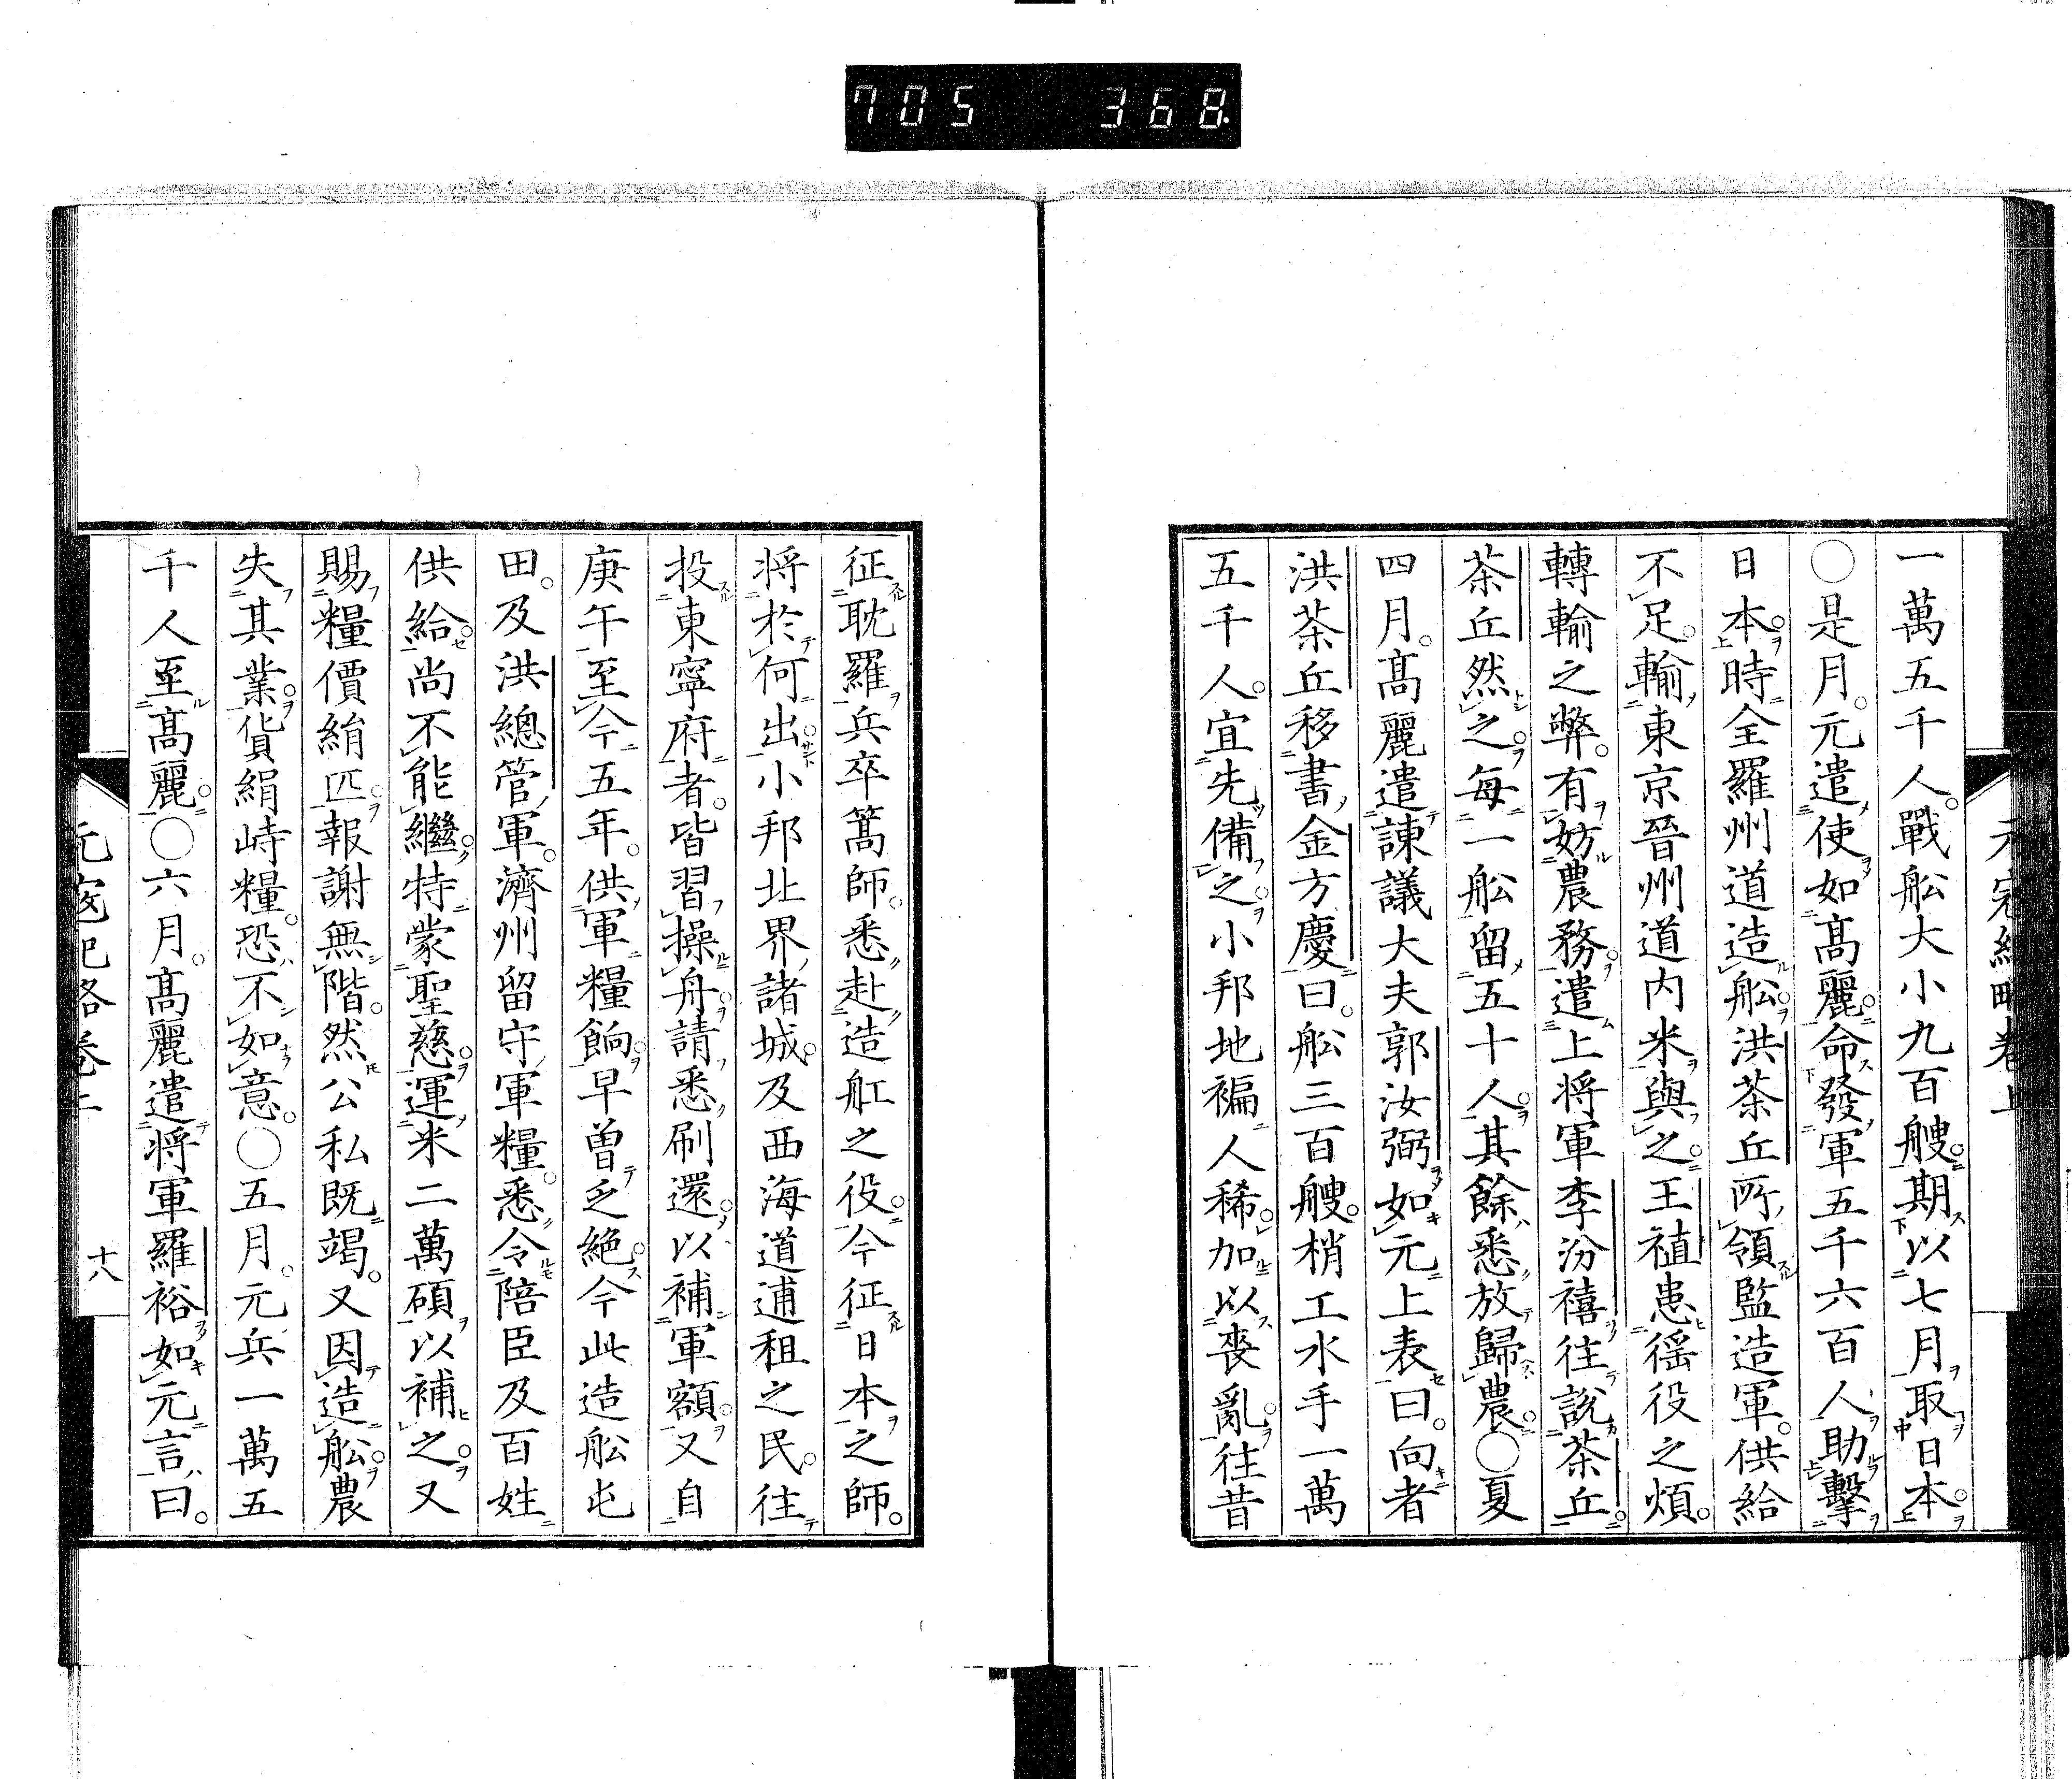 705 368
元寇紀略卷上
一萬五千人。戰舩大小九百艘。期以七月取日本。
○是月。元遣使如高麗。命發軍五千六百人助擊
日本。時全羅州道造舩。洪茶丘所領監造軍。供給
不足。輸東京晉州道内米與之。王植患徭役之煩。
轉輸之弊。有妨農務。遣上将軍李汾禧往說茶丘。
茶丘然之。每一舩留五十人。其餘悉放歸農。○夏
四月。高麗遣諫議大夫郭汝弼如元上表曰。向者
洪茶丘移書金方慶曰。舩三百艘。梢工水手一萬
五千人。宜先備之。小邦地褊人稀。加以喪亂。往昔
征耽羅兵卒篙師。悉赴造舡之役。今征日本之師。
将於何出。小邦北界諸城。及西海道逋租之民。往
投東寧府者。皆習操舟。請悉刷還。以補軍額。又自
庚午至今五年。供軍糧餉。早曽乏絶。今此造舩屯
田。及洪總管軍。濟州留守軍糧。悉令陪臣及百姓
供給。尚不能繼。特蒙聖慈。運米二萬碩以補之。又
賜糧價絹匹。報謝無階。然公私既竭。又因造舩。農
失其業。貨絹峙糧。恐不如意。○五月。元兵一萬五
千人至高麗。○六月。高麗遣将軍羅裕如元言曰。
元寇紀略卷上
十八